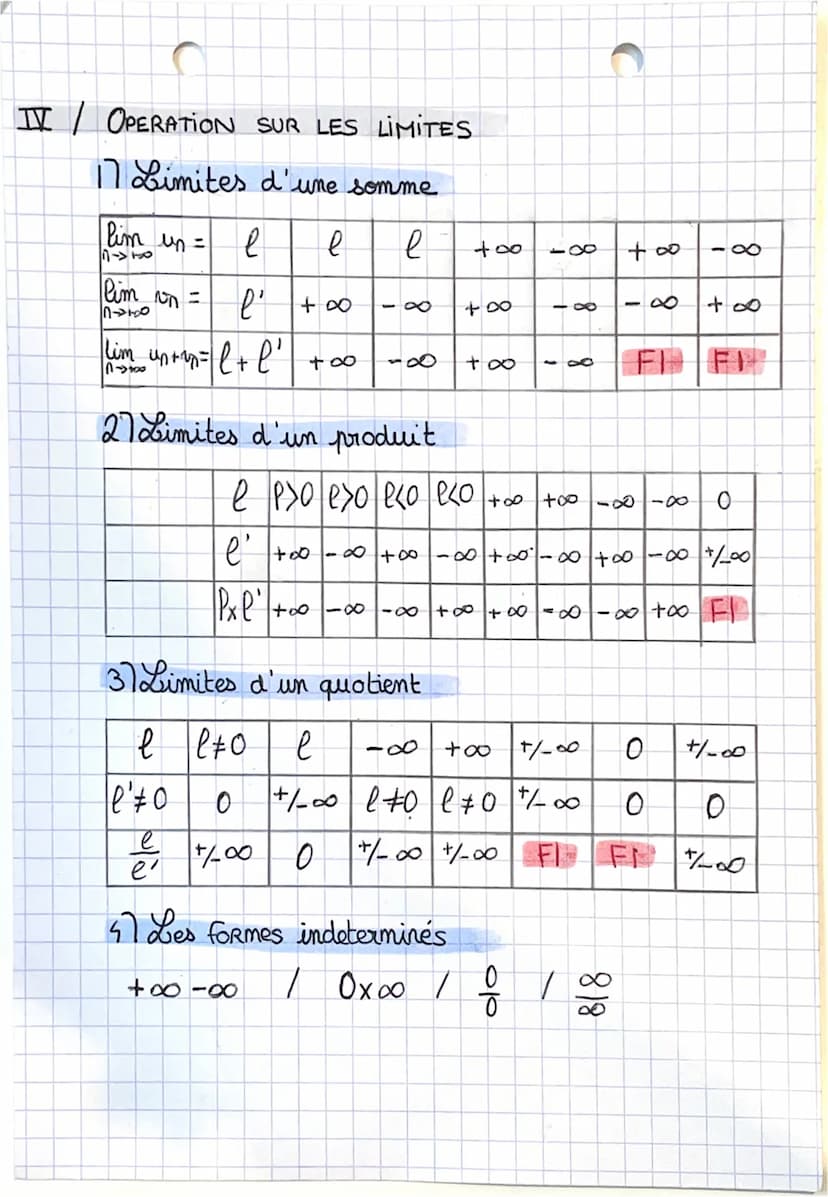 IV / OPERATION SUR LES LIMITES
1) Limites d'une somme
lim n->+∞ un = | l | l | l | +∞ | -∞ | +∞ | -∞
lim n->+∞ vn = | l' | +∞ | -∞ | +∞ | -∞ | -∞ | +∞
lim n->+∞ un+vn= | l + l' | +∞ | -∞ | +∞ | -∞ | FI | FI
2) Limites d'un produit
l | l>0 | l>0 | l<0 | l<0 | +∞ | +∞ | -∞ | -∞ | 0
l' | +∞ | -∞ | +∞ | -∞ | +∞ | -∞ | +∞ | -∞ | +/-∞
l x l' | +∞ | -∞ | -∞ | +∞ | +∞ | -∞ | -∞ | +∞ | FI
3) Limites d'un quotient
l | l≠0 | l | -∞ | +∞ | +/-∞ | 0 | +/-∞
l'≠0 | 0 | +/-∞ | l≠0 | l≠0 | +/-∞ | 0 | 0
l/l' | +/-∞ | 0 | +/-∞ | +/-∞ | FI | FI | +/-∞
4) Les formes indeterminés
+∞ -∞ / 0x∞ / 0/0 / ∞/∞